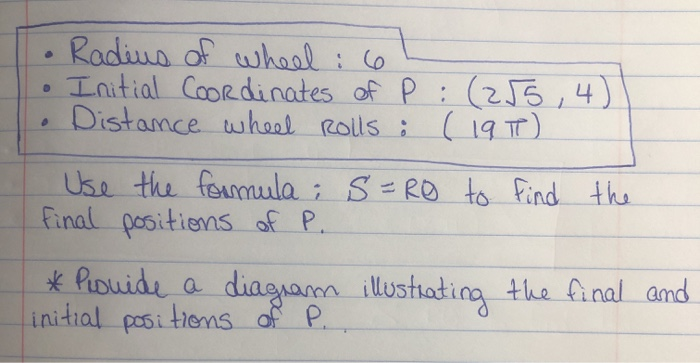 • Radius of wheel : 6
• Initial Coordinates of P : (2√5, 4)
• Distance wheel Rolls : (19π)
Use the formula : S = RΘ to find the
final positions of P.
* Provide a diagram illustrating the final and
initial positions of P.